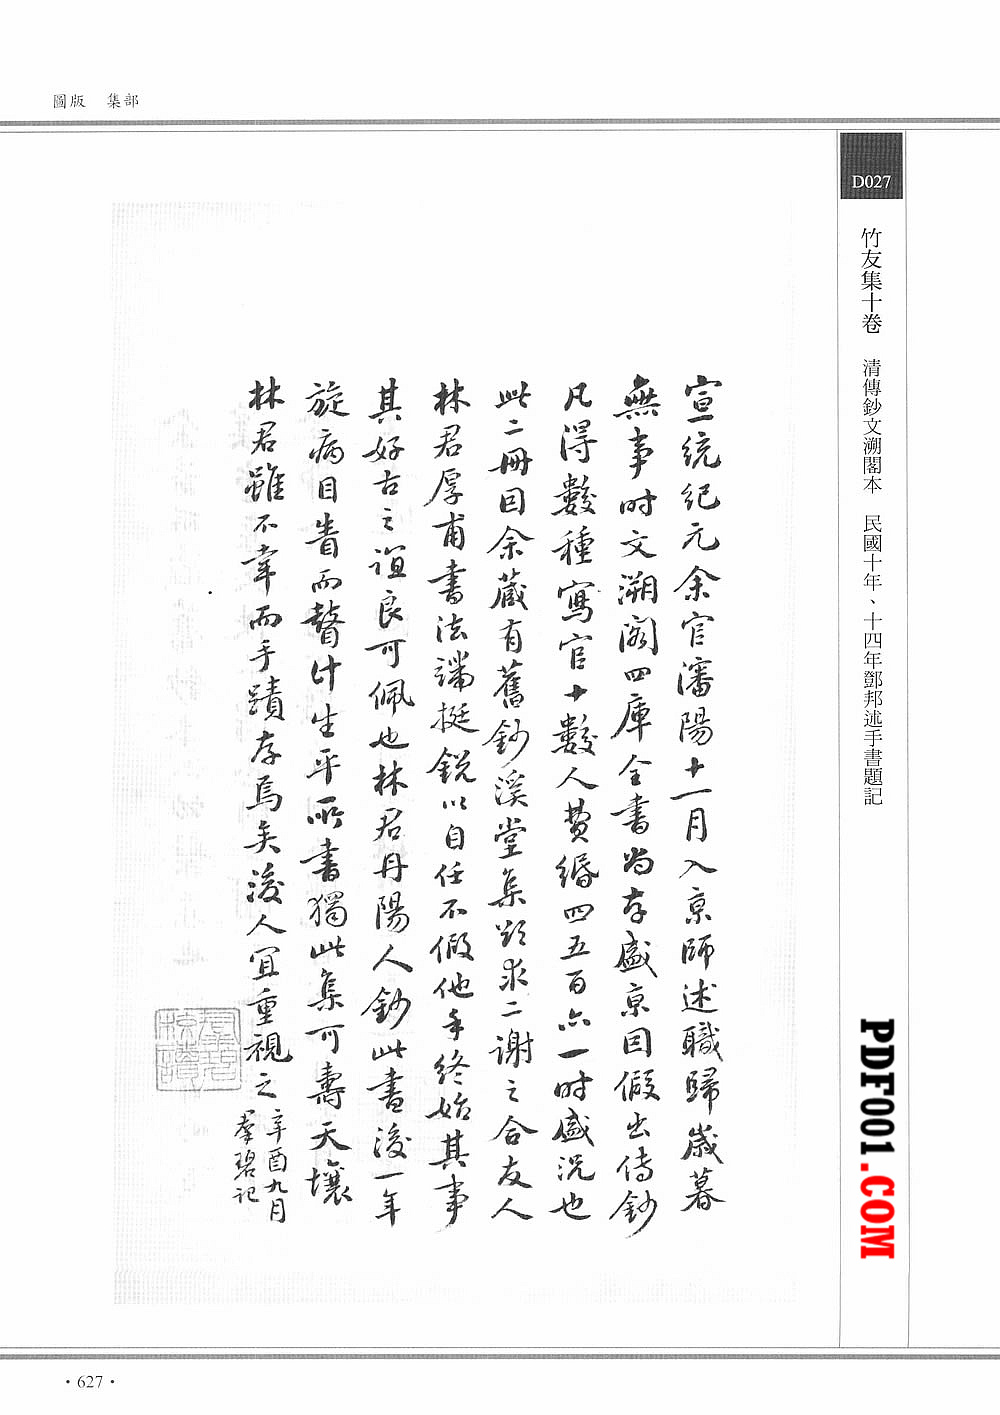 圖版　集部
D027
竹友集十卷　清傳鈔文溯閣本　民國十年、十四年鄧邦述手書題記
宣統紀元余官瀋陽十一月入京師述職歸歲暮
無事時文溯閣四庫全書尚存盛京因假出傳鈔
凡得數種寫官十數人費緡四五百亦一時盛況也
此二冊因余藏有舊鈔溪堂集欲求二謝之合友人
林君厚甫書法端挺銳以自任不假他手終始其事
其好古之誼良可佩也林君丹陽人鈔此書後一年
旋病目眚而瞽計生平所書獨此集可壽天壤
林君雖不幸而手蹟存焉矣後人宜重視之辛酉九月
羣碧記
羣碧校讀
PDF001.COM
·627·